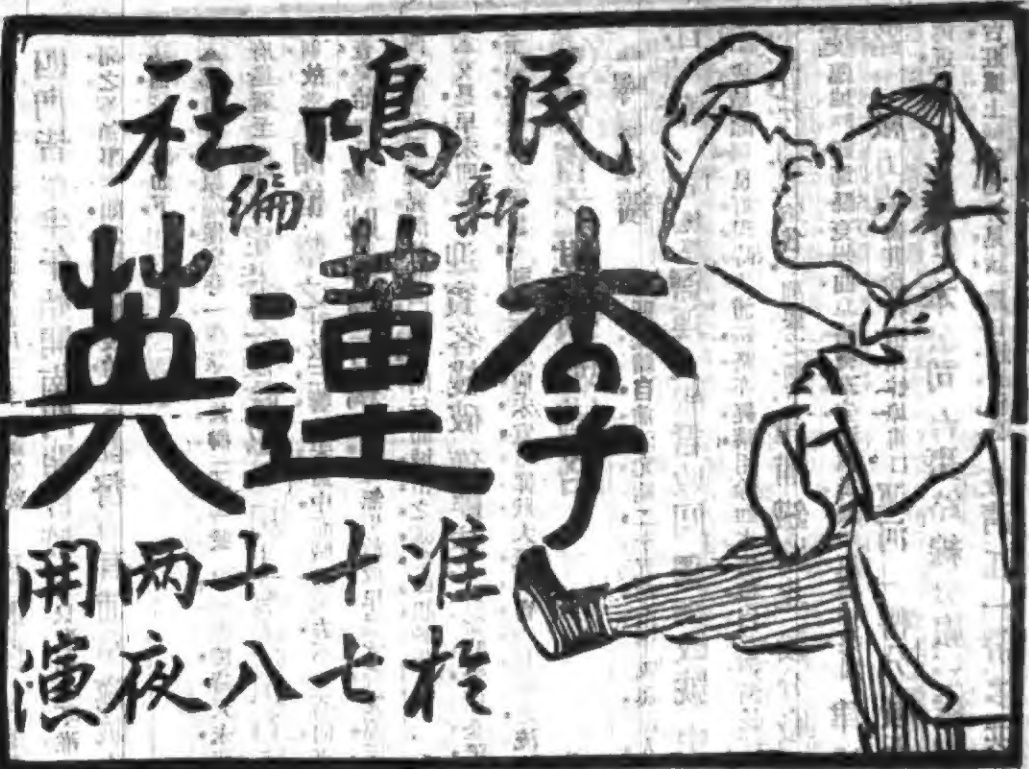 民鳴社
新編
李蓮英
准於
十七
十八
兩夜
開演